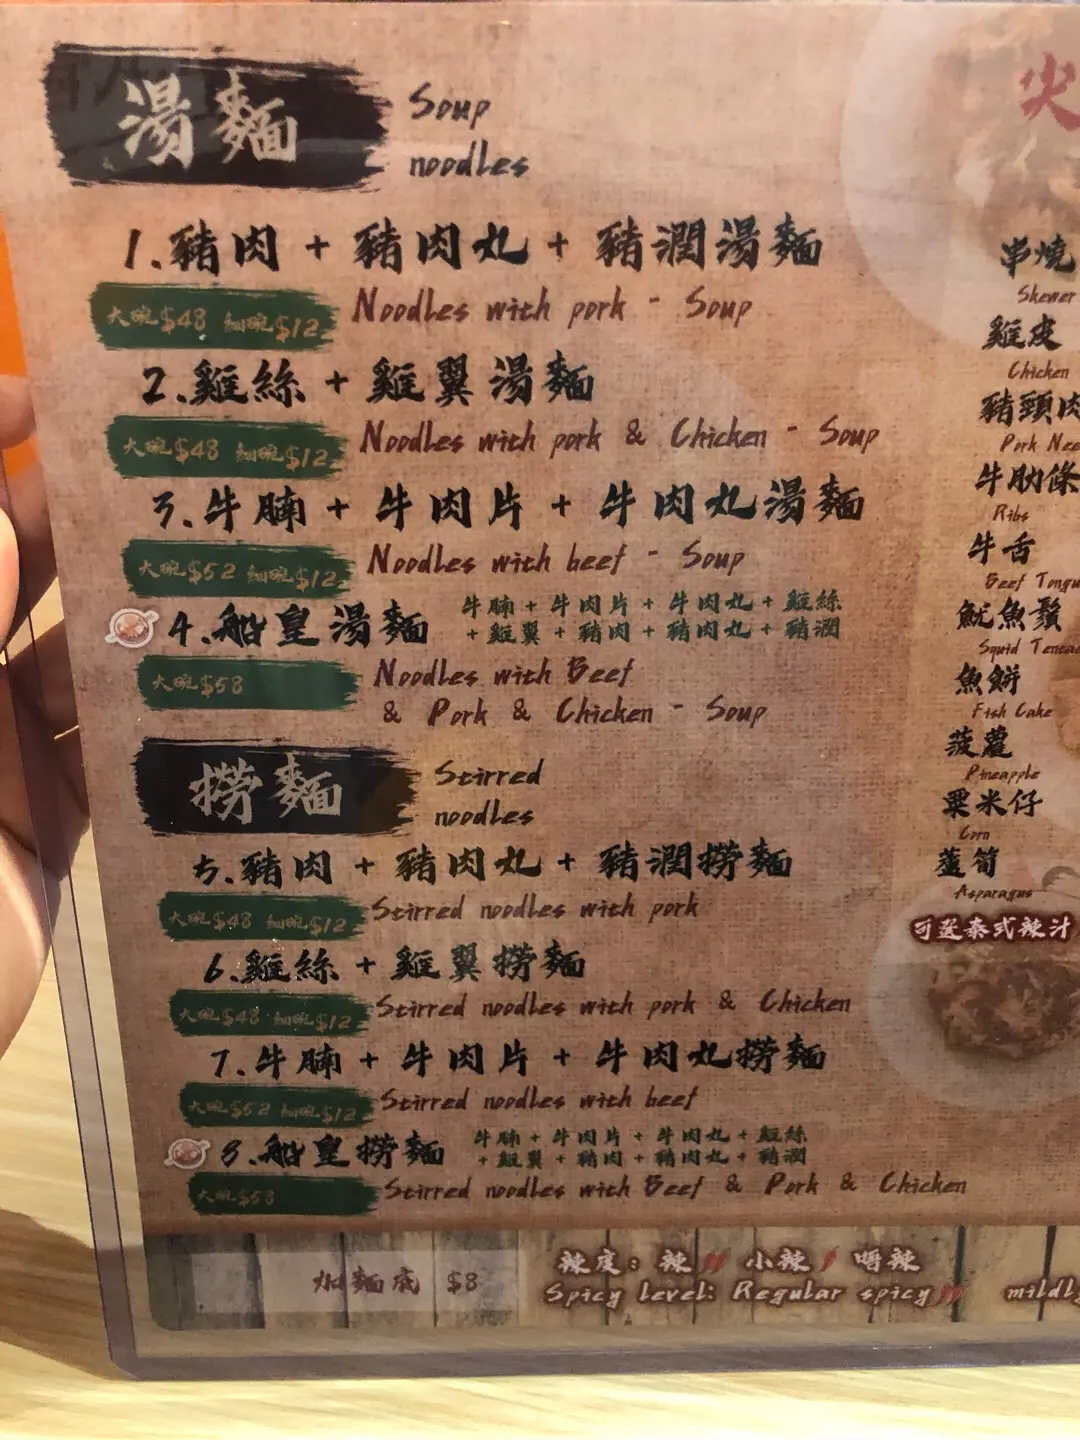 湯麵
Soup
noodles
1.豬肉 + 豬肉丸 + 豬潤湯麵
大碗$48 細碗$12
Noodles with pork - Soup
2.雞絲 + 雞翼湯麵
大碗$48 細碗$12
Noodles with pork & Chicken - Soup
3.牛腩 + 牛肉片 + 牛肉丸湯麵
大碗$52 細碗$12
Noodles with beef - Soup
4.船皇湯麵
牛腩+牛肉片+牛肉丸+雞絲
+雞翼+豬肉+豬肉丸+豬潤
大碗$58
Noodles with Beef
& Pork & Chicken - Soup
撈麵
Stirred
noodles
5.豬肉 + 豬肉丸 + 豬潤撈麵
大碗$48 細碗$12
Stirred noodles with pork
6.雞絲 + 雞翼撈麵
大碗$48 細碗$12
Stirred noodles with pork & Chicken
7.牛腩 + 牛肉片 + 牛肉丸撈麵
大碗$52 細碗$12
Stirred noodles with beef
8.船皇撈麵
牛腩+牛肉片+牛肉丸+雞絲
+雞翼+豬肉+豬肉丸+豬潤
大碗$58
Stirred noodles with Beef & Pork & Chicken
加麵底 $8
辣度：辣 小辣 唔辣
Spicy level: Regular spicy mildly
尖
串燒
Skewer
雞皮
Chicken
豬頸肉
Pork Nec
牛肋條
Ribs
牛舌
Beef Tongu
魷魚鬚
Squid Tentac
魚餅
Fish Cake
菠蘿
Pineapple
粟米仔
Corn
蘆筍
Asparagus
可選泰式辣汁